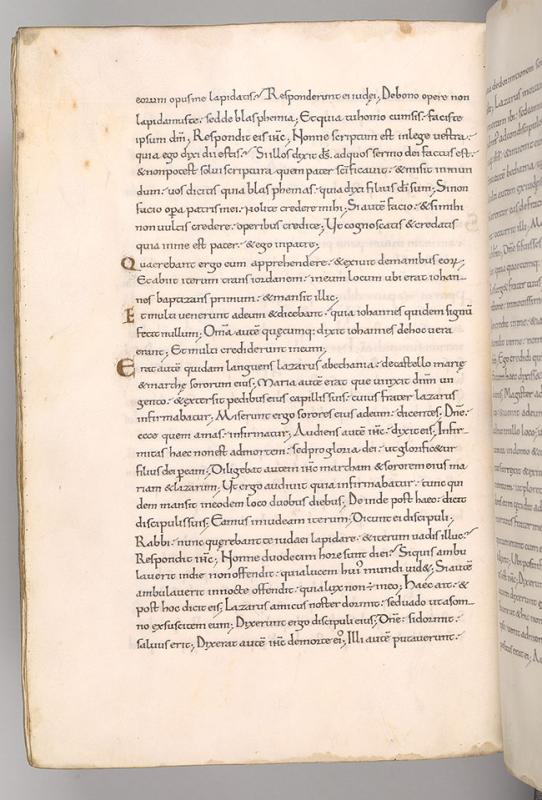 eorum opus me lapidatis? Responderunt ei iudęi; De bono opere non
lapidamus te. sed de blasphemia; Et quia tu homo cum sis. facis te
ipsum dm̄; Respondit eis ih̄c; Nonne scriptum est in lege vestra.
quia ego dixi dii estis? Si illos dixit dṡ. ad quos sermo dei factus est.
& non potest solvi scriptura quem pater scificavit. & misit in mun
dum. vos dicitis quia blasphemas. quia dixi filius di sum; Si non
facio opa patris mei. nolite credere mihi; Si autē facio. & si mihi
non vultis credere. operibus credite; Ut cognoscatis & credatis
quia in me est pater. & ego in patre;
Quaerebant ergo eum apprehendere. & exivit de manibus eorꝝ.
Et abiit iterum trans iordanem. in eum locum ubi erat iohan
nes baptizans primum. & mansit illic;
Et multi venerunt ad eum & dicebant. quia iohannes quidem signū
fecit nullum; Omia autē quęcumq; dixit iohannes de hoc vera
erant; Et multi crediderunt in eum;
Erat autē quidam languens lazarus a bethania. de castello marię
& marthę sororum eius; Maria autē erat quę unxit dnm un
gento. & extersit pedes eius capillis suis. cuius frater lazarus
infirmabatur; Miserunt ergo sorores eius ad eum. dicentes; Dn̄e.
ecce quem amas. infirmatur; Audiens autē ih̄c. dixit eis; Infir
mitas haec non est ad mortem. sed pro gloria dei. ut glorificetur
filius dei p eam; Diligebat autem ih̄c martham & sororem eius ma
riam & lazarum; Ut ergo audivit quia infirmabatur. tunc qui
dem mansit in eodem loco duobus diebus; Deinde post haec. dicit
discipulis suis; Eamus in iudeam iterum; Dicunt ei discipuli;
Rabbi. nunc quęrebant te iudaei lapidare. & iterum vadis illuc?
Respondit ih̄c; Nonne duodecim horę sunt diei? Si quis ambu
laverit in die non offendit. quia lucem hui' mundi vid&; Si autē
ambulaverit in nocte offendit. quia lux non ÷ in eo; Haec ait. &
post hoc dicit eis; Lazarus amicus noster dormit. sed vado ut a som
no exsuscitem eum; Dixerunt ergo discipuli eius; Dn̄e. si dormit.
salvus erit; Dixerat autē ih̄c de morte ei'; Illi autē putaverunt.